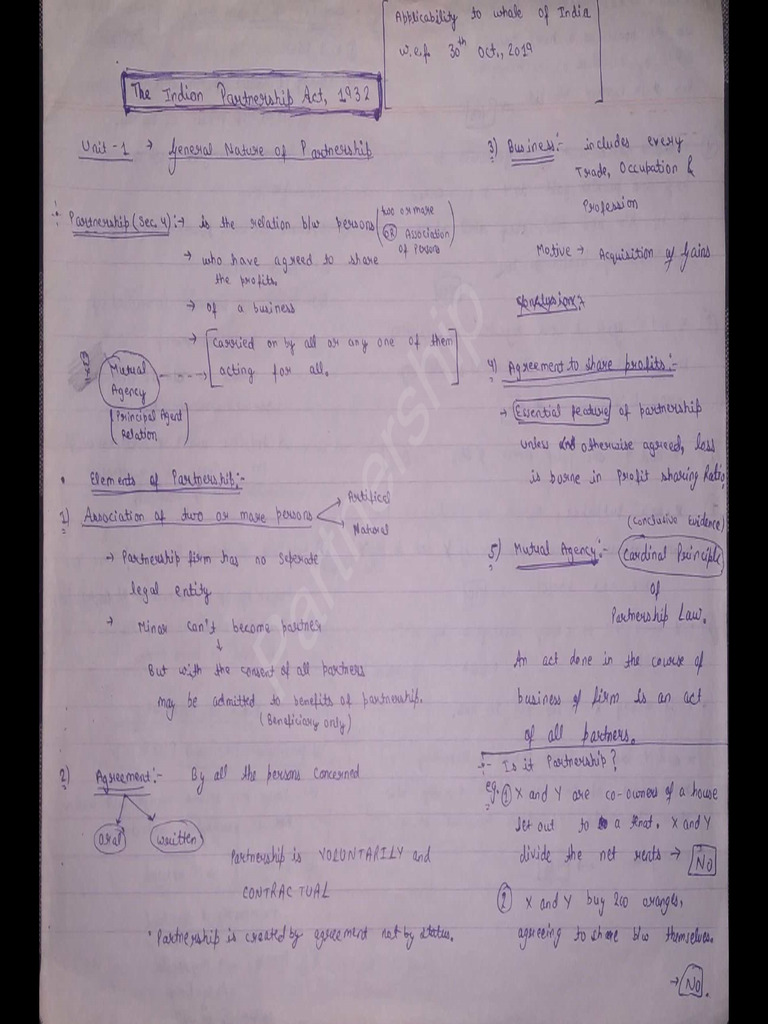 Applicability to whole of India
w.e.f. 30th Oct., 2019
The Indian Partnership Act, 1932
Unit - 1 → General Nature of Partnership
Partnership (Sec. 4) :→ is the relation b/w persons (two or more
OR Association
of Persons)
→ who have agreed to share
the profits.
→ of a business
→ [Carried on by all or any one of them
acting for all.]
Mutual
Agency
(Principal Agent
Relation)
• Elements of Partnership:-
1) Association of two or more persons
Artificel
Natural
→ Partnership firm has no seperate
legal entity
→ Minor can't become partner
↓
But with the consent of all partners
may be admitted to benefits of partnership.
(Beneficiary only)
2) Agreement:- By all the persons concerned
oral
written
Partnership is VOLUNTARILY and
CONTRACTUAL
• Partnership is created by agreement not by status.
3) Business:- includes every
Trade, Occupation &
Profession
Motive → Acquisition of Gains
4) Agreement to share profits:-
→ Essential feature of partnership
unless otherwise agreed, loss
is borne in Profit sharing Ratio,
(conclusive Evidence)
5) Mutual Agency:- Cardinal Principle
of
Partnership Law.
An act done in the course of
business of firm is an act
of all partners.
Is it Partnership?
eg. ① X and Y are co-owners of a house
let out to a X and Y
divide the net rents → No
② X and Y buy 200 oranges,
agreeing to share b/w themselves.
→ No.
Partnership